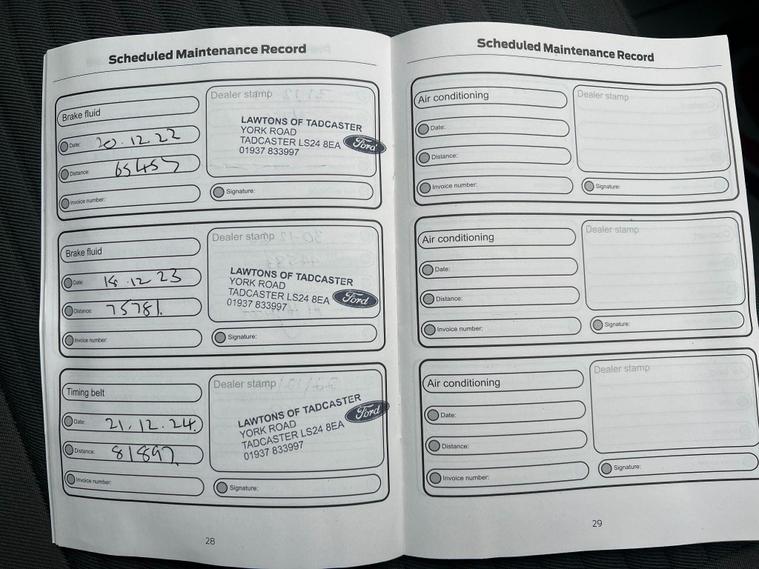 Scheduled Maintenance Record
Brake fluid
Date: 20.12.22
Distance: 65457
Invoice number:
Dealer stamp
LAWTONS OF TADCASTER
YORK ROAD
TADCASTER LS24 8EA
01937 833997
Ford
Signature:
Brake fluid
Date: 18.12.23
Distance: 75781.
Invoice number:
Dealer stamp
LAWTONS OF TADCASTER
YORK ROAD
TADCASTER LS24 8EA
01937 833997
Ford
Signature:
Timing belt
Date: 21.12.24.
Distance: 81897.
Invoice number:
Dealer stamp
LAWTONS OF TADCASTER
YORK ROAD
TADCASTER LS24 8EA
01937 833997
Ford
Signature:
28
Scheduled Maintenance Record
Air conditioning
Date:
Distance:
Invoice number:
Dealer stamp
Signature:
Air conditioning
Date:
Distance:
Invoice number:
Dealer stamp
Signature:
Air conditioning
Date:
Distance:
Invoice number:
Dealer stamp
Signature:
29